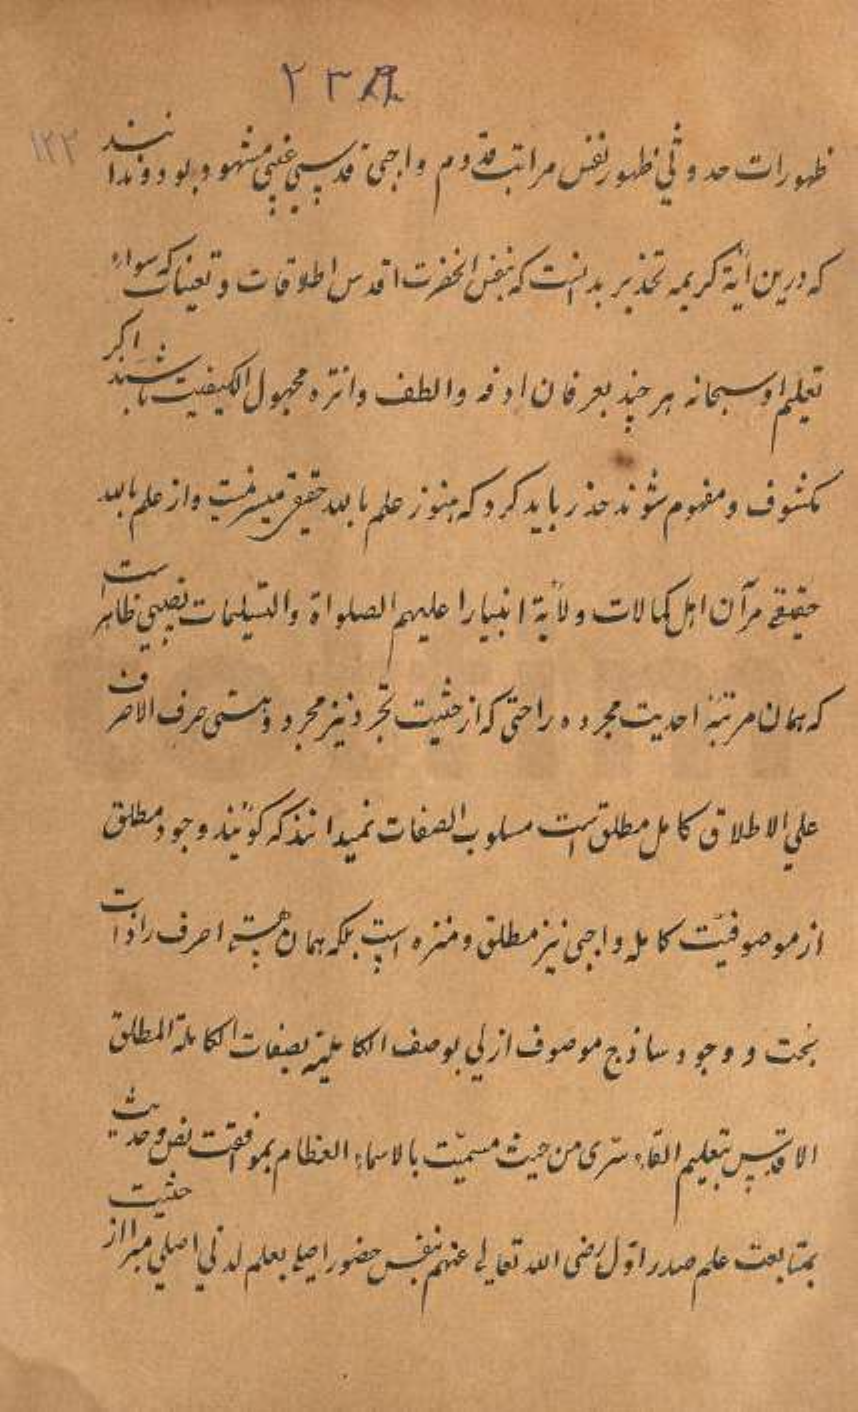 ۲۳۸
۱۲۳
ظهورات حدوثی ظهور نفس مراتب قدوم واجبی قدسی غیبی مشهود بود و ندانند
که درین آیة کریمه تحذیر بدانست که بنفس الحضرت اقدس اطلاقات و تعینات که سواء
تعلیم او سبحانه هر چند بعرفان ادق و الطف و انزه مجهول الکیفیت باشند اگر
مکشوف و مفهوم شوند حذر باید کرد که هنوز علم بالله حقیقی میسر نیست و از علم بالله
حقیقی مر آن اهل کمالات ولایة انبیا را علیهم الصلواة والتسلیمات نصیبی ظاهر است
که همان مرتبهٔ احدیت مجرده را حتی که از حیثیت تجرد نیز مجرد و هستی صرف الاصرف
علی الاطلاق کامل مطلق است مسلوب الصفات نمیدانند که گویند وجود مطلق
از موصوفیت کامله واجبی نیز مطلق و منزه است بلکه همان هستی اصرف را ذات
بحت و وجود ساذج موصوف ازلی بوصف الکاملیة بصفات الکاملة المطلق
الاقدس بتعلیم القاء سری من حیث مسمیت بالاسماء العظام بموافقت نص و حدیث
بمتابعت علم صدر اول رضی الله تعالی عنهم بنفس حضور اصلی بعلم لدنی اصلی مبرا از حیثیت